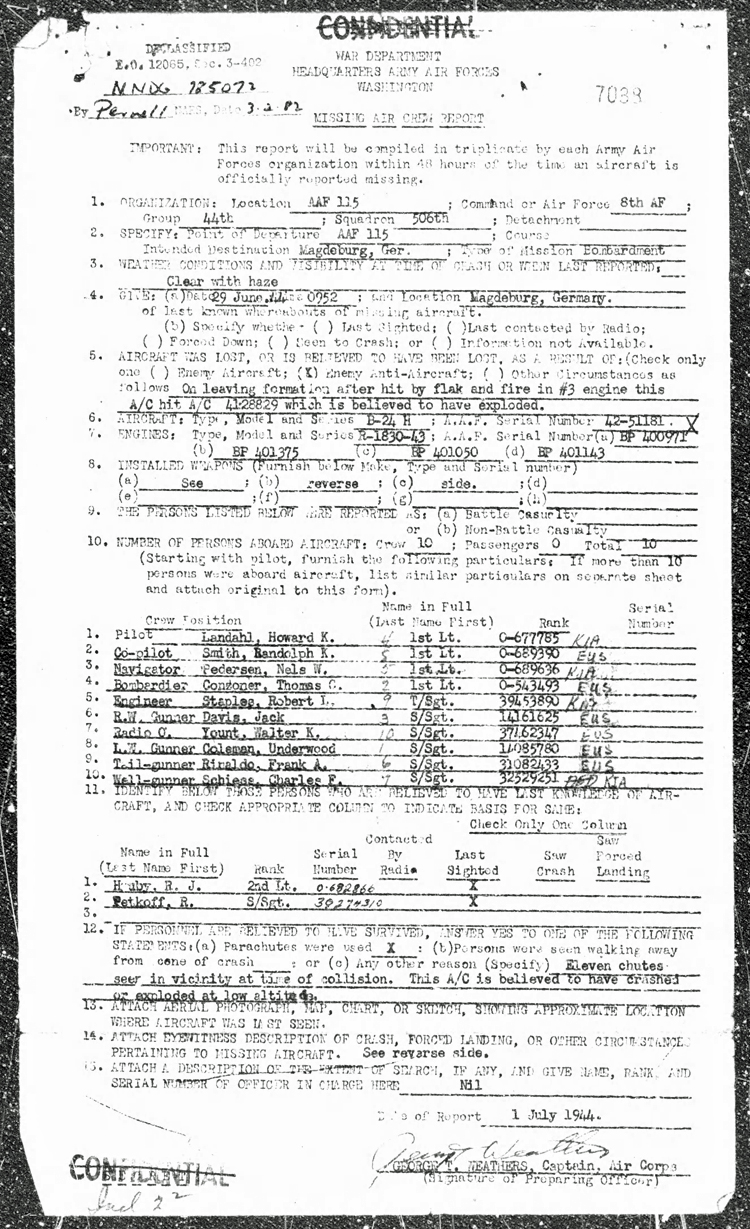 CONFIDENTIAL
DECLASSIFIED
E.O. 12065, Sec. 3-402
NNDG 785072
By Pernell NARS, Date 3-2-82
WAR DEPARTMENT
HEADQUARTERS ARMY AIR FORCES
WASHINGTON
7038
MISSING AIR CREW REPORT
IMPORTANT: This report will be compiled in triplicate by each Army Air
Forces organization within 48 hours of the time an aircraft is
officially reported missing.
1. ORGANIZATION: Location AAF 115 ; Command or Air Force 8th AF ;
Group 44th ; Squadron 506th ; Detachment
2. SPECIFY: Point of Departure AAF 115 ; Course
Intended Destination Magdeburg, Ger. ; Type of Mission Bombardment
3. WEATHER CONDITIONS AND VISIBILITY AT TIME OF CRASH OR WHEN LAST REPORTED:
Clear with haze
4. GIVE: (a) Date 29 June, 44 0952 ; and Location Magdeburg, Germany.
of last known whereabouts of missing aircraft.
(b) Specify whether ( ) Last Sighted; ( )Last contacted by Radio;
( ) Forced Down; ( ) Seen to Crash; or ( ) Information not Available.
5. AIRCRAFT WAS LOST, OR IS BELIEVED TO HAVE BEEN LOST, AS A RESULT OF:(Check only
one ( ) Enemy Aircraft; (X) Enemy Anti-Aircraft; ( ) Other Circumstances as
follows On leaving formation after hit by flak and fire in #3 engine this
A/C hit A/C 41-28829 which is believed to have exploded.
6. AIRCRAFT: Type, Model and Series B-24 H ; A.A.F. Serial Number 42-51181.
7. ENGINES: Type, Model and Series R-1830-43 ; A.A.F. Serial Number(a) BP 400971
(b) BP 401375 (c) BP 401050 (d) BP 401143
8. INSTALLED WEAPONS (Furnish below Make, Type and Serial number)
(a) See ; (b) reverse ; (c) side. ;(d)
(e) ;(f) ; (g) ;(h)
9. THE PERSONS LISTED BELOW WERE REPORTED AS: (a) Battle Casualty
or (b) Non-Battle Casualty
10. NUMBER OF PERSONS ABOARD AIRCRAFT: Crew 10 ; Passengers 0 Total 10
(Starting with pilot, furnish the following particulars: If more than 10
persons were aboard aircraft, list similar particulars on separate sheet
and attach original to this form).
Crew Position Name in Full (Last Name First) Rank Serial Number
1. Pilot Landahl, Howard K. 4 1st Lt. O-677785 KIA
2. Co-pilot Smith, Randolph K. 5 1st Lt. O-689390 EUS
3. Navigator Pedersen, Nels W. 1st Lt. O-689636 KIA
4. Bombardier Conzoner, Thomas C. 2 1st Lt. O-543493 EUS
5. Engineer Staples, Robert L. 9 T/Sgt. 39453890
6. R.W. Gunner Davis, Jack 3 S/Sgt. 14161625 EUS
7. Radio O. Yount, Walter K. 10 S/Sgt. 37162347 EUS
8. L.W. Gunner Coleman, Underwood 1 S/Sgt. 14085780 EUS
9. Tail-gunner Rinaldo, Frank A. 6 S/Sgt. 31082433 EUS
10. Wall-gunner Schiess, Charles F. 7 S/Sgt. 32529251 KIA
11. IDENTIFY BELOW THOSE PERSONS WHO ARE BELIEVED TO HAVE LAST KNOWLEDGE OF AIR-
CRAFT, AND CHECK APPROPRIATE COLUMN TO INDICATE BASIS FOR SAME:
Check Only One Column
Contacted Saw
Name in Full Serial By Last Saw Forced
(Last Name First) Rank Number Radio Sighted Crash Landing
1. R. J. 2nd Lt. 0-682866 X
2. Petkoff, R. S/Sgt. 39274310 X
3.
12. IF PERSONNEL ARE BELIEVED TO HAVE SURVIVED, ANSWER YES TO ONE OF THE FOLLOWING
STATEMENTS:(a) Parachutes were used X ; (b)Persons were seen walking away
from cene of crash ; or (c) Any other reason (Specify) Eleven chutes
seen in vicinity at time of collision. This A/C is believed to have crashed
or exploded at low altitude.
13. ATTACH AERIAL PHOTOGRAPH, MAP, CHART, OR SKETCH, SHOWING APPROXIMATE LOCATION
WHERE AIRCRAFT WAS LAST SEEN.
14. ATTACH EYEWITNESS DESCRIPTION OF CRASH, FORCED LANDING, OR OTHER CIRCUMSTANCES
PERTAINING TO MISSING AIRCRAFT. See reverse side.
15. ATTACH A DESCRIPTION OF THE EXTENT OF SEARCH, IF ANY, AND GIVE NAME, RANK, AND
SERIAL NUMBER OF OFFICER IN CHARGE HERE Nil
Date of Report 1 July 1944.
George T. Weathers
GEORGE T. WEATHERS, Captain, Air Corps
(Signature of Preparing Officer)
CONFIDENTIAL
Incl 22